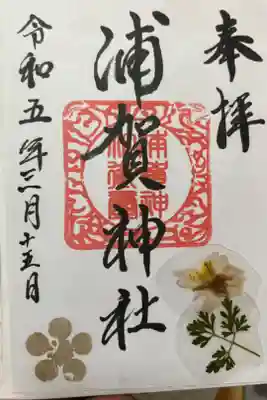 奉拝
浦賀神社
令和五年三月十五日